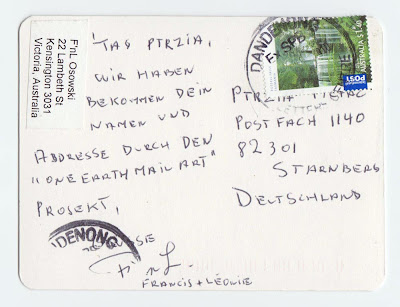 F'nL Osowski
22 Lambeth St
Kensington 3031
Victoria, Australia
TAG PTRZIA,
WIR HABEN
BEKOMMEN DEIN
NAMEN UND
ADDRESSE DURCH DEN
"ONE EARTH MAIL ART"
PROSEKT,
FRANCIS + LÉONIE
DANDENONG
DENONG
POST
PTRZIA
POSTFACH 1140
82301
STARNBERG
DEUTSCHLAND